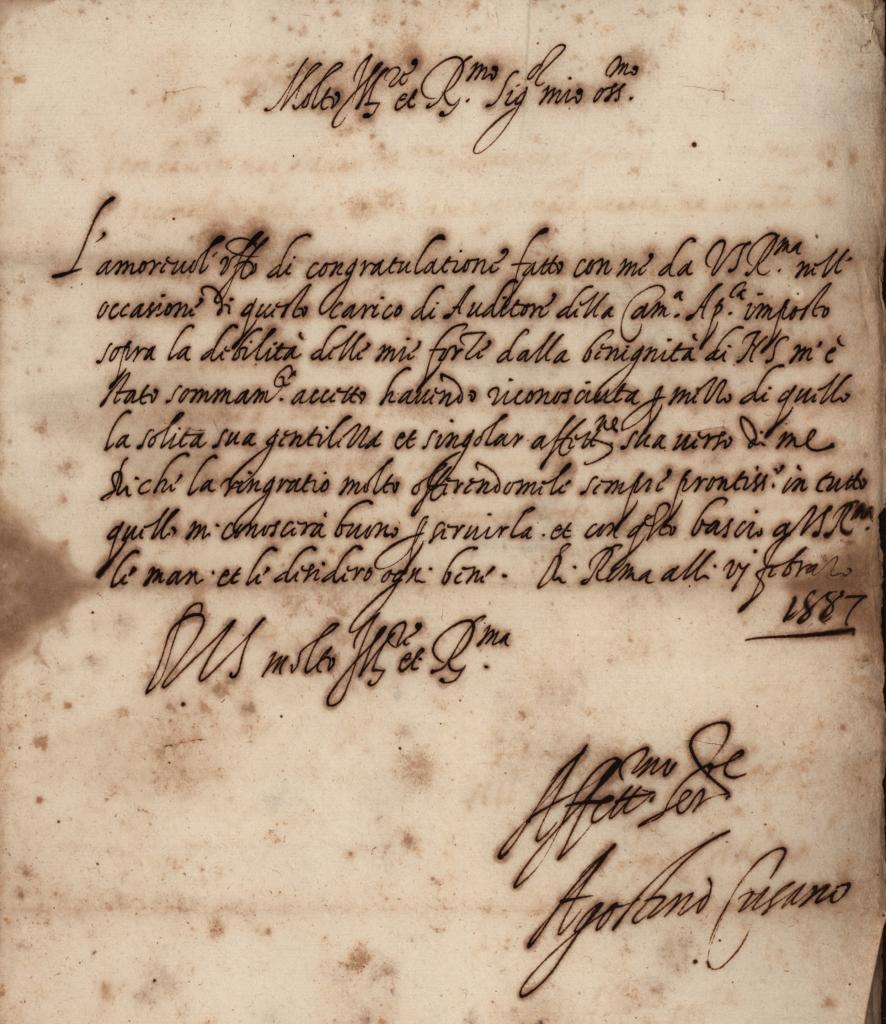 Molto Ill.re et R.mo Sig.ol mio oss.mo
L'amorevol' offo di congratulatione fatto con me da VS R.ma nell'
occasione di questo carico di Auditore della Cam.a Ap.ca imposto
sopra la debilità delle mie forze dalla benignità di N S m'è
stato sommam.te accetto havendo riconosciuta p mezzo di quello
la solita sua gentilezza et singolar affett.ne sua verso di me
Di che la ringratio molto offerendomele sempre prontiss.o in tutto
quello mi conoscerà buono p servirla. et con qsto bascio a VS R.ma
le mani et le desidero ogni bene. Di Roma alli vj febraro
1887
D VS molto Ill.re et R.ma
Affett.mo Ser.re
Agostino Cusano